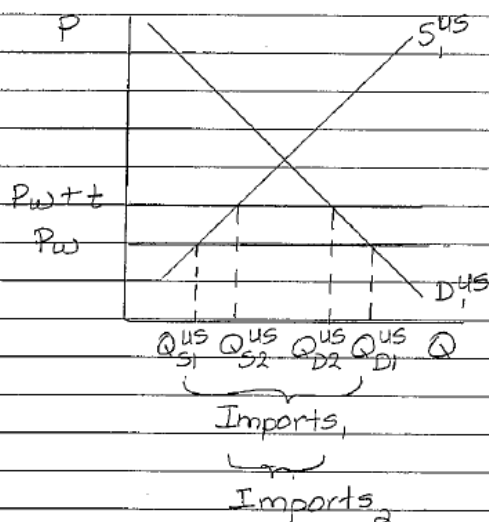 P
S₁ᵁˢ
Pw + t
Pw
D₁ᵁˢ
Qs₁ᵁˢ Qs₂ᵁˢ QD₂ᵁˢ QD₁ᵁˢ Q
Imports₁
Imports₂